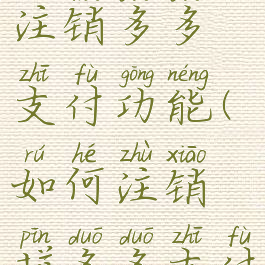 注销多多
zhī fù gōng néng
支付功能(
rú hé zhù xiāo
如何注销
pīn duō duō zhī fù
拼多多支付